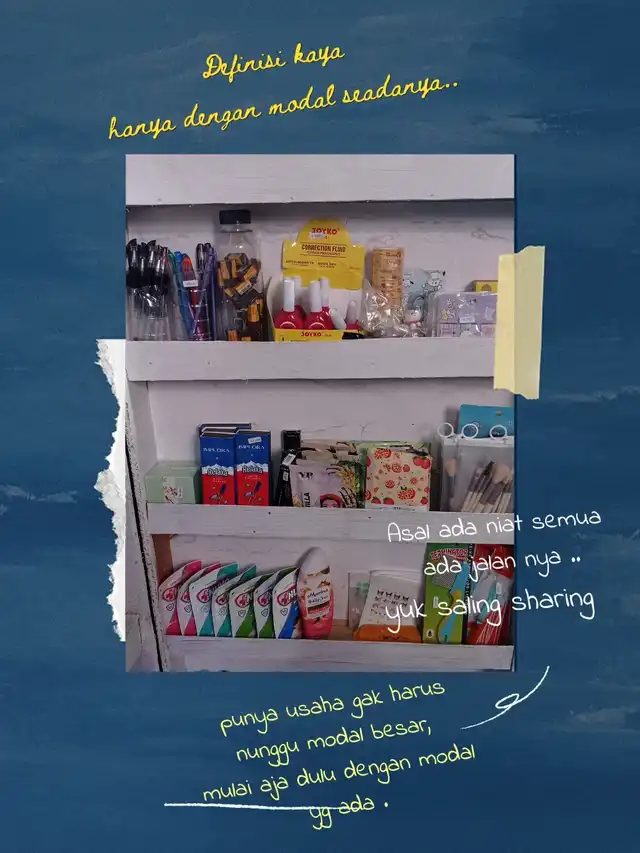 Definisi kaya
hanya dengan modal seadanya..
JOYKO
CORRECTION FLUID
JOYKO
IMPLORA
IMPLORA
Asal ada niat semua
ada jalan nya ..
yuk saling sharing
punya usaha gak harus
nunggu modal besar,
mulai aja dulu dengan modal
yg ada .